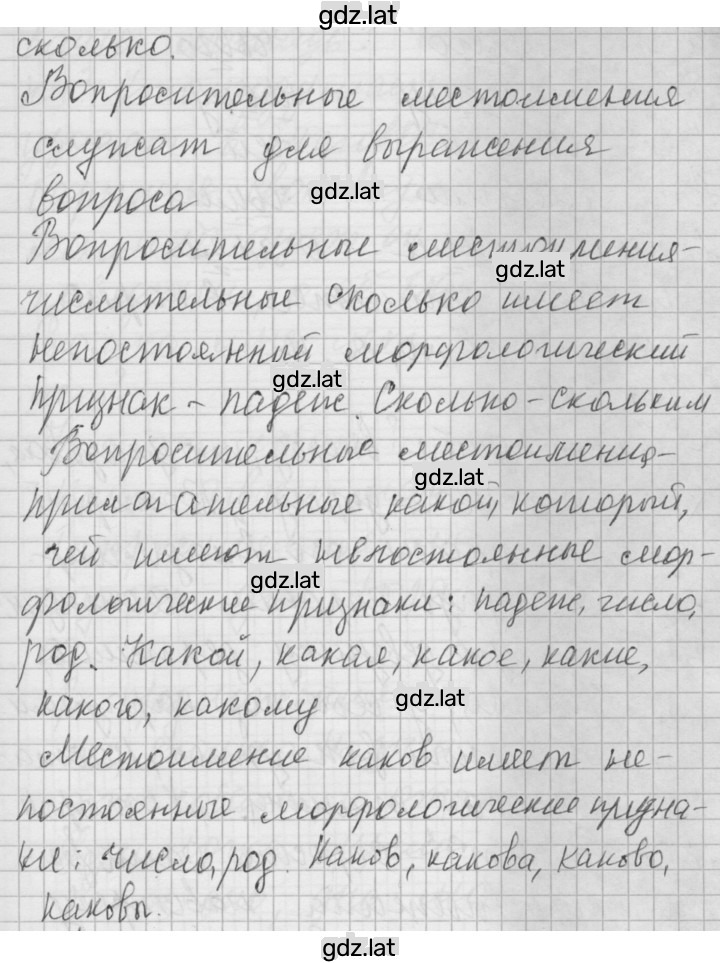 gdz.lat
сколько.
Вопросительные местоимения
служат для выражения
вопроса gdz.lat
Вопросительные местоимения-
gdz.lat
числительные сколько имеет
непостоянный морфологический
gdz.lat
признак - падеж. Сколько-скольким
Вопросительные местоимения-
gdz.lat
прилагательные какой, который,
чей имеют непостоянные мор-
gdz.lat
фологические признаки: падеж, число,
род. Какой, какая, какое, какие,
какого, какому gdz.lat
Местоимение каков имеет не-
постоянные морфологические призна-
ки: число, род. Каков, какова, каково,
каковы.
gdz.lat